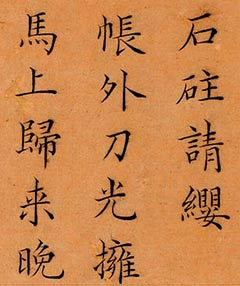 石砫請纓
帳外刀光擁
馬上歸来晚